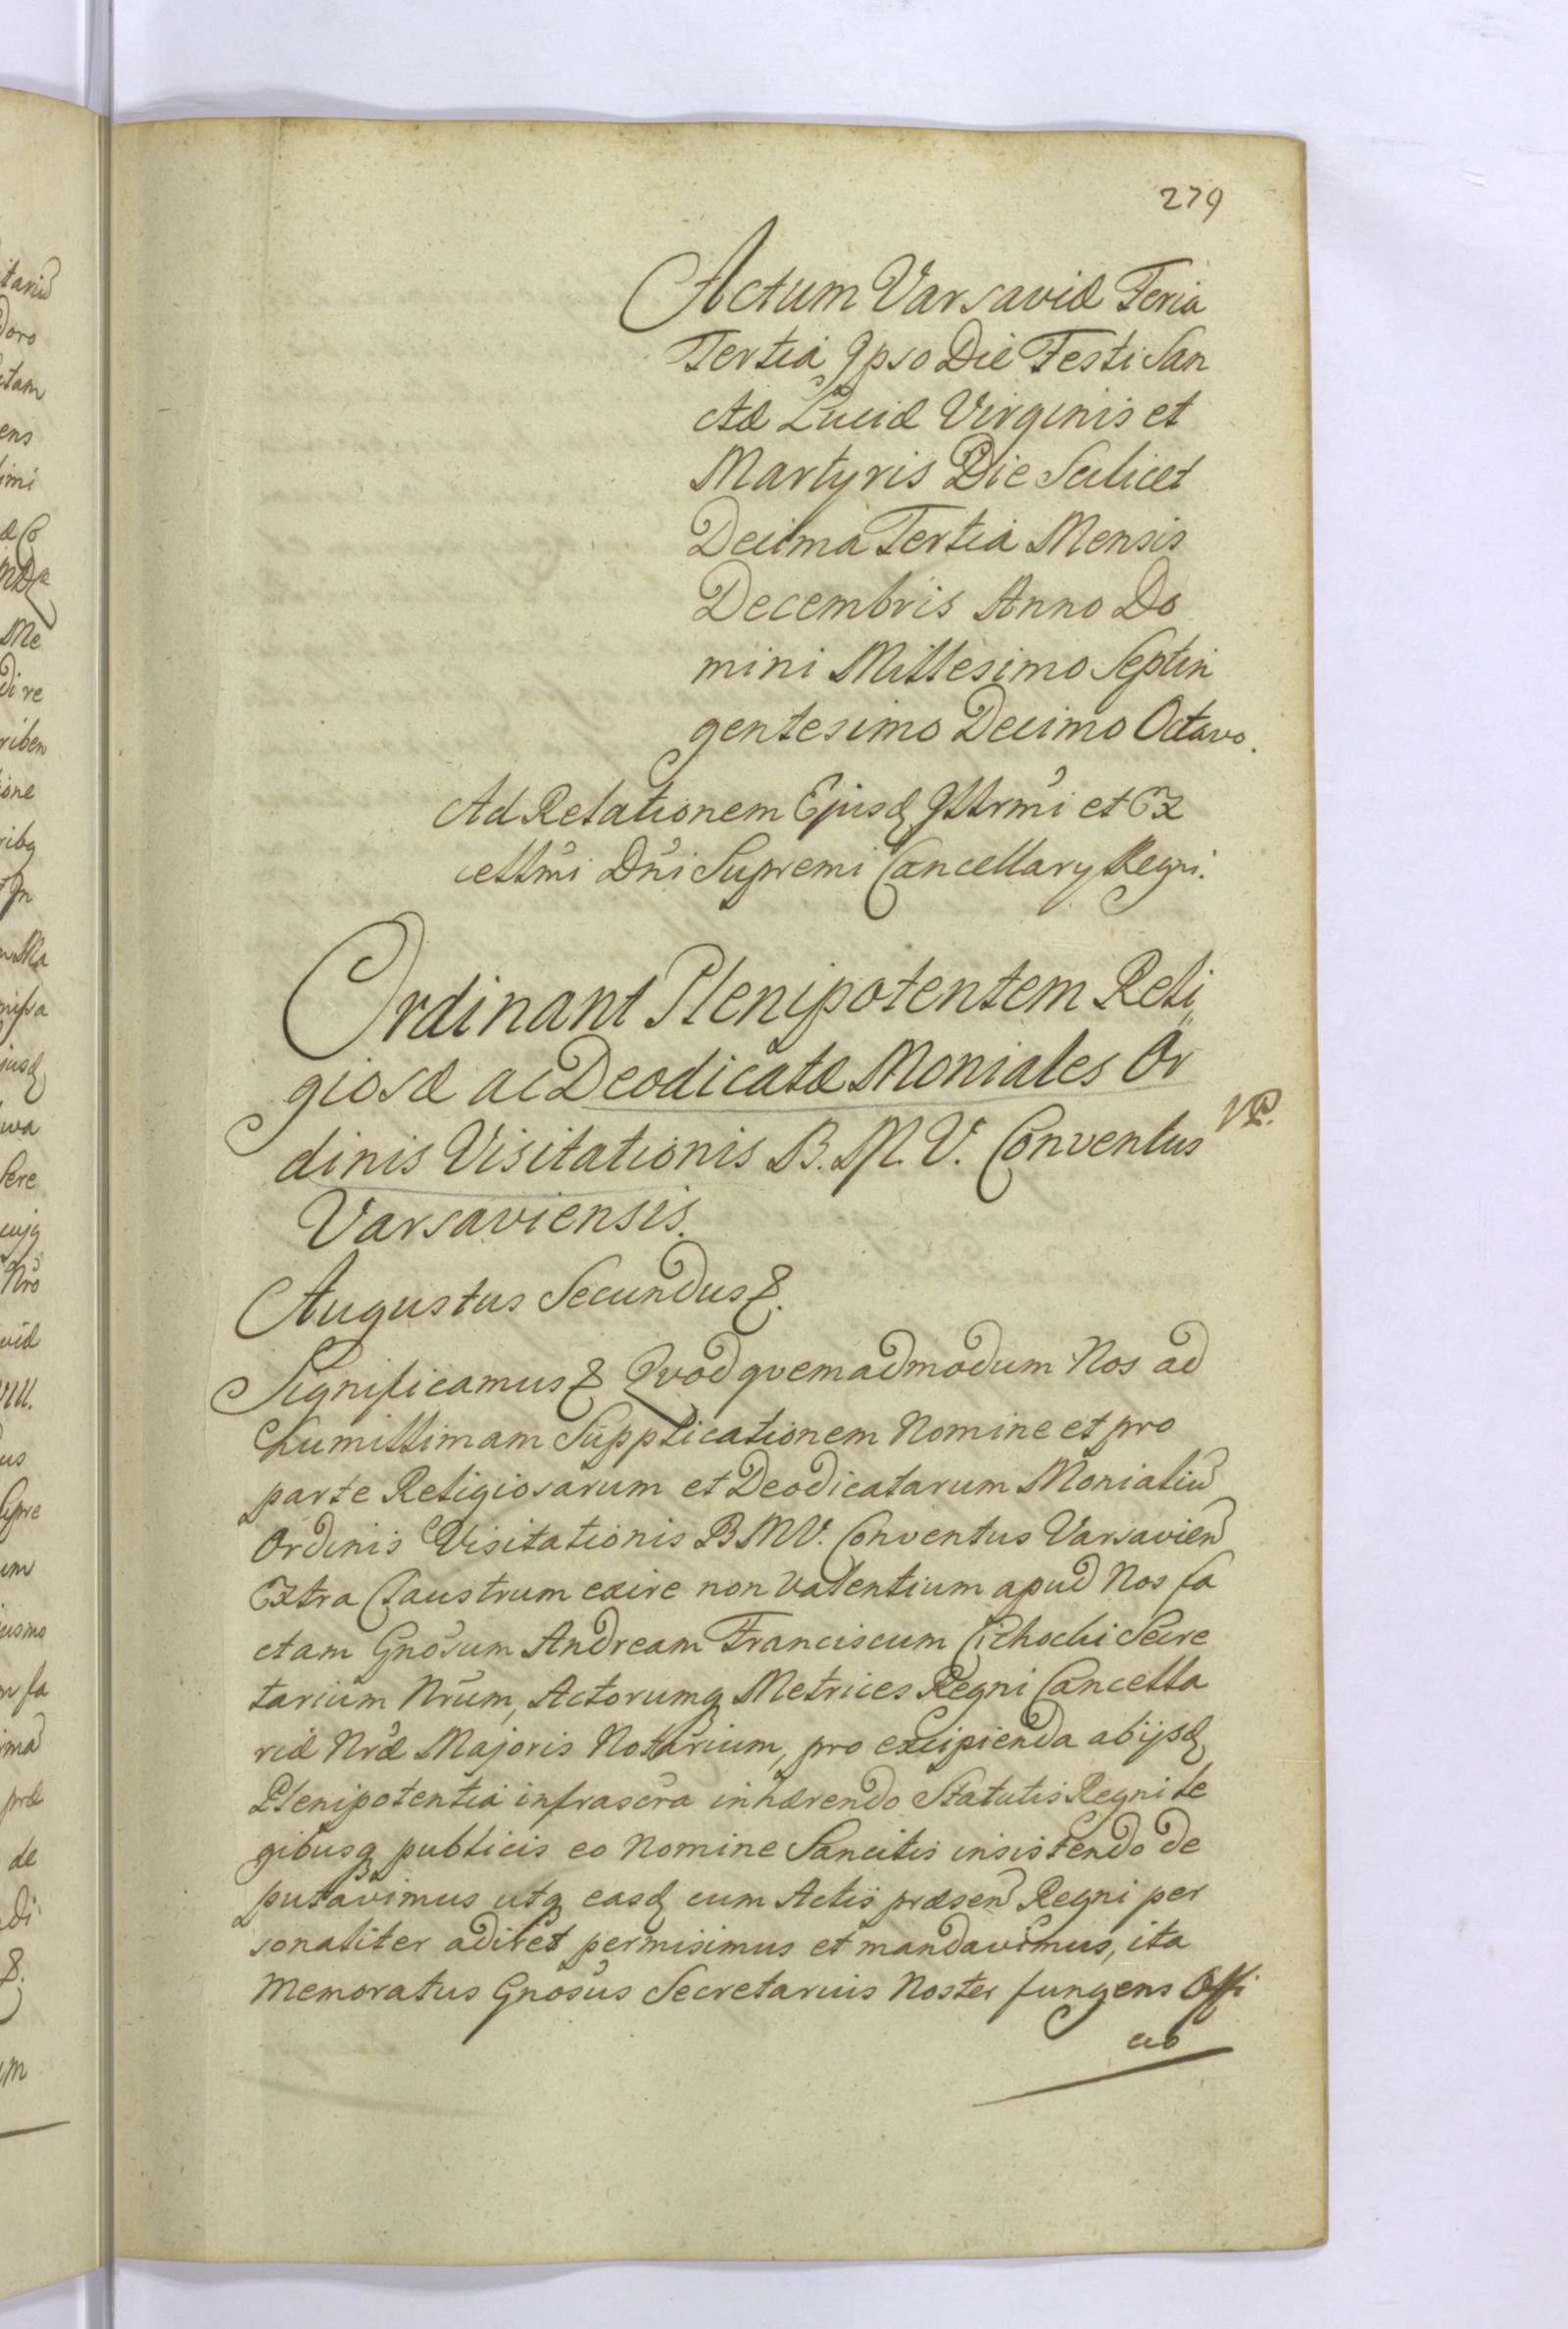 279
Actum Varsaviæ Feria
Tertia Ipso Die Festi San
ctæ Luciæ Virginis et
Martyris Die Scilicet
Decima Tertia Mensis
Decembris Anno Do
mini Millesimo Septin
gentesimo Decimo Octavo.
Ad Relationem Ejusq Illrmi et Ex
cellmi Dni Supremi Cancellary Regni.
Ordinant Plenipotentem Reli,
giosæ ac Deodicatæ Moniales Or
dinis Visitationis B. M. V. Conventus
Varsaviensis.
Augustus Secundus &.
Significamus & Quod quemadmodum Nos ad
humillimam Supplicationem Nomine et pro
parte Religiosarum et Deodicatarum Monialiu
Ordinis Visitationis BMV. Conventus Varsavien
Extra Claustrum exire non valentium apud Nos fa
ctam Gnosum Andream Franciscum Cichocki Secre
tarium Nrum, Actorumq Metrices Regni Cancella
riæ Nræ Majoris Notarium, pro excipienda ab ijsd
Plenipotentia infrascra inhærendo Statutis Regni le
gibusq publicis eo Nomine Sancitis insistendo de
putavimus utq easd cum Actis præsen Regni per
sonaliter adiret permisimus et mandavimus, ita
Memoratus Gnosus Secretarius Noster fungens Offi
cio